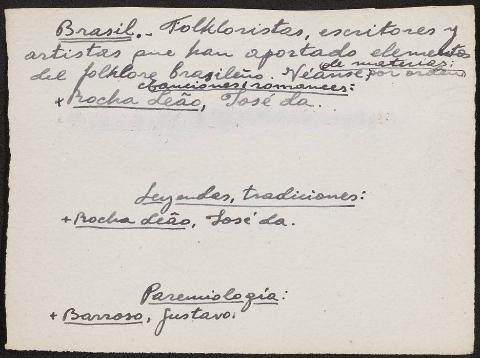 Brasil.- Folkloristas, escritores y
artistas que han aportado elementos
del folklore brasileño. Véanse, por orden
de materias:
Canciones, romances:
+ Rocha Leão, José da.
Leyendas, tradiciones:
+ Rocha Leão, José da.
Paremiología:
+ Barroso, Gustavo.